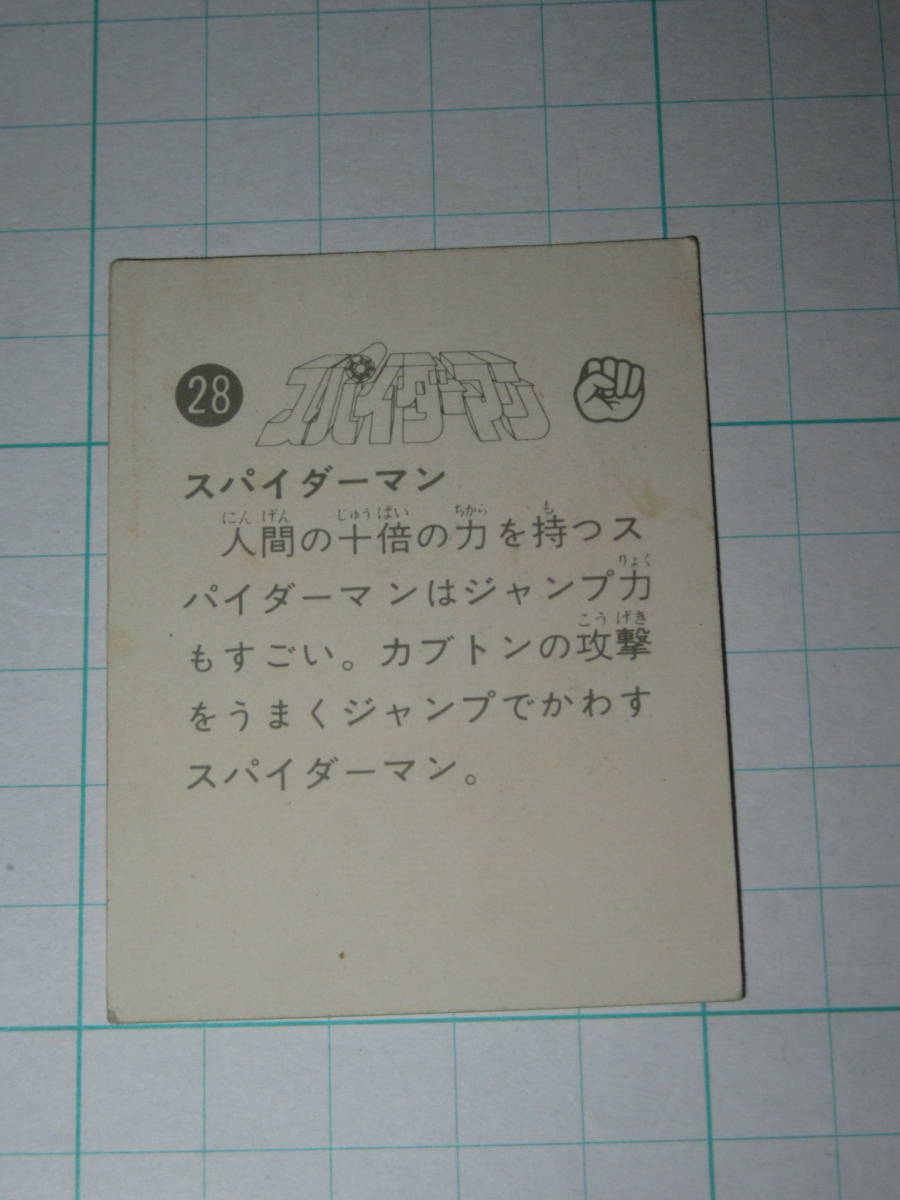 28 スパイダーマン
スパイダーマン
にんげん じゅうばい ちから も
人間の十倍の力を持つス
りょく
パイダーマンはジャンプ力
こうげき
もすごい。カブトンの攻撃
をうまくジャンプでかわす
スパイダーマン。